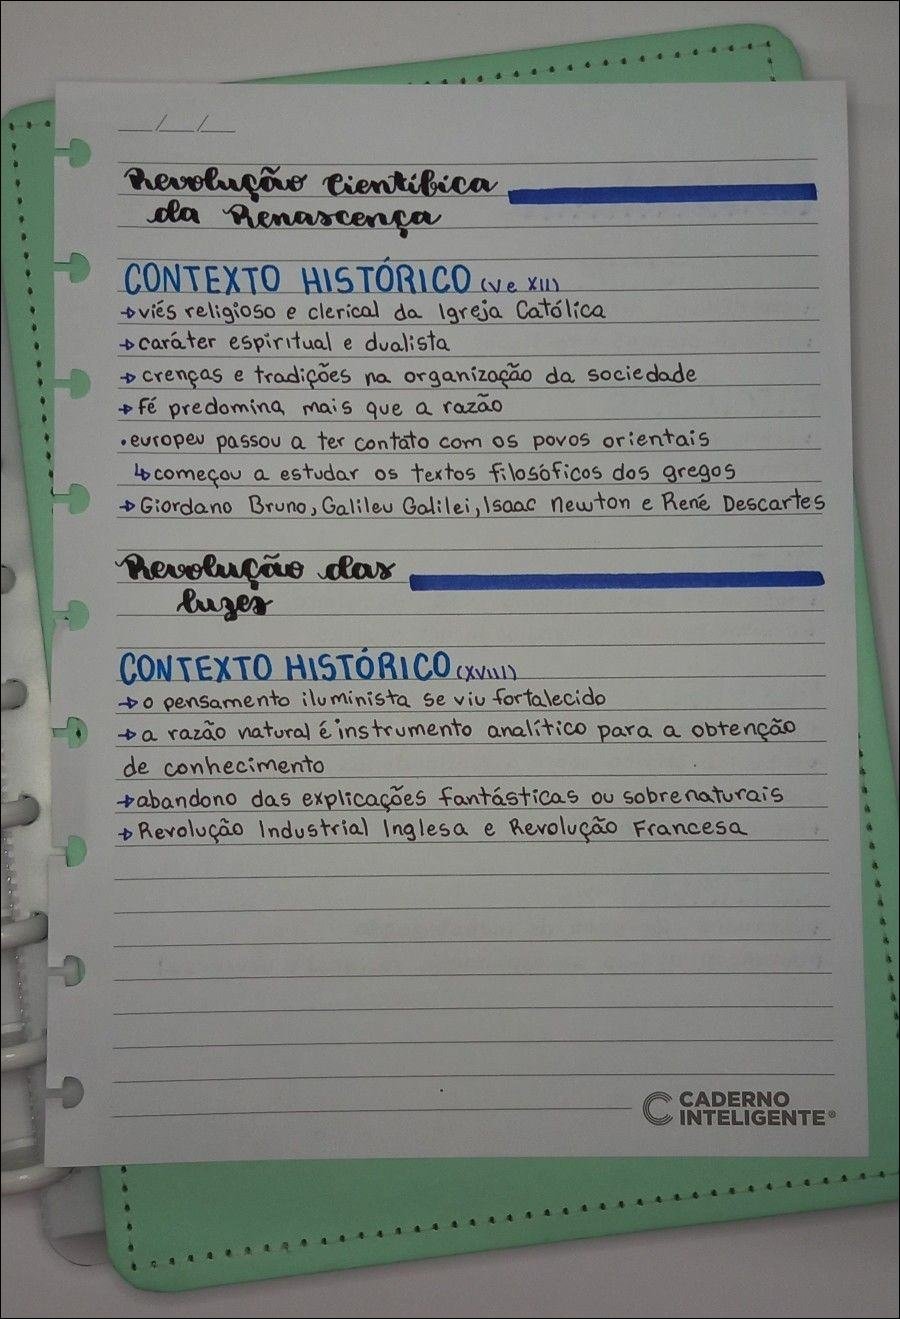 __/__/__
Revolução Científica
da Renascença
CONTEXTO HISTÓRICO (V e XII)
→viés religioso e clerical da Igreja Católica
→caráter espiritual e dualista
→crenças e tradições na organização da sociedade
→fé predomina mais que a razão
•europeu passou a ter contato com os povos orientais
↳começou a estudar os textos filosóficos dos gregos
→Giordano Bruno, Galileu Galilei, Isaac Newton e René Descartes
Revolução das
luzes
CONTEXTO HISTÓRICO (XVIII)
→o pensamento iluminista se viu fortalecido
→a razão natural é instrumento analítico para a obtenção
de conhecimento
→abandono das explicações fantásticas ou sobrenaturais
→Revolução Industrial Inglesa e Revolução Francesa
CADERNO
INTELIGENTE®